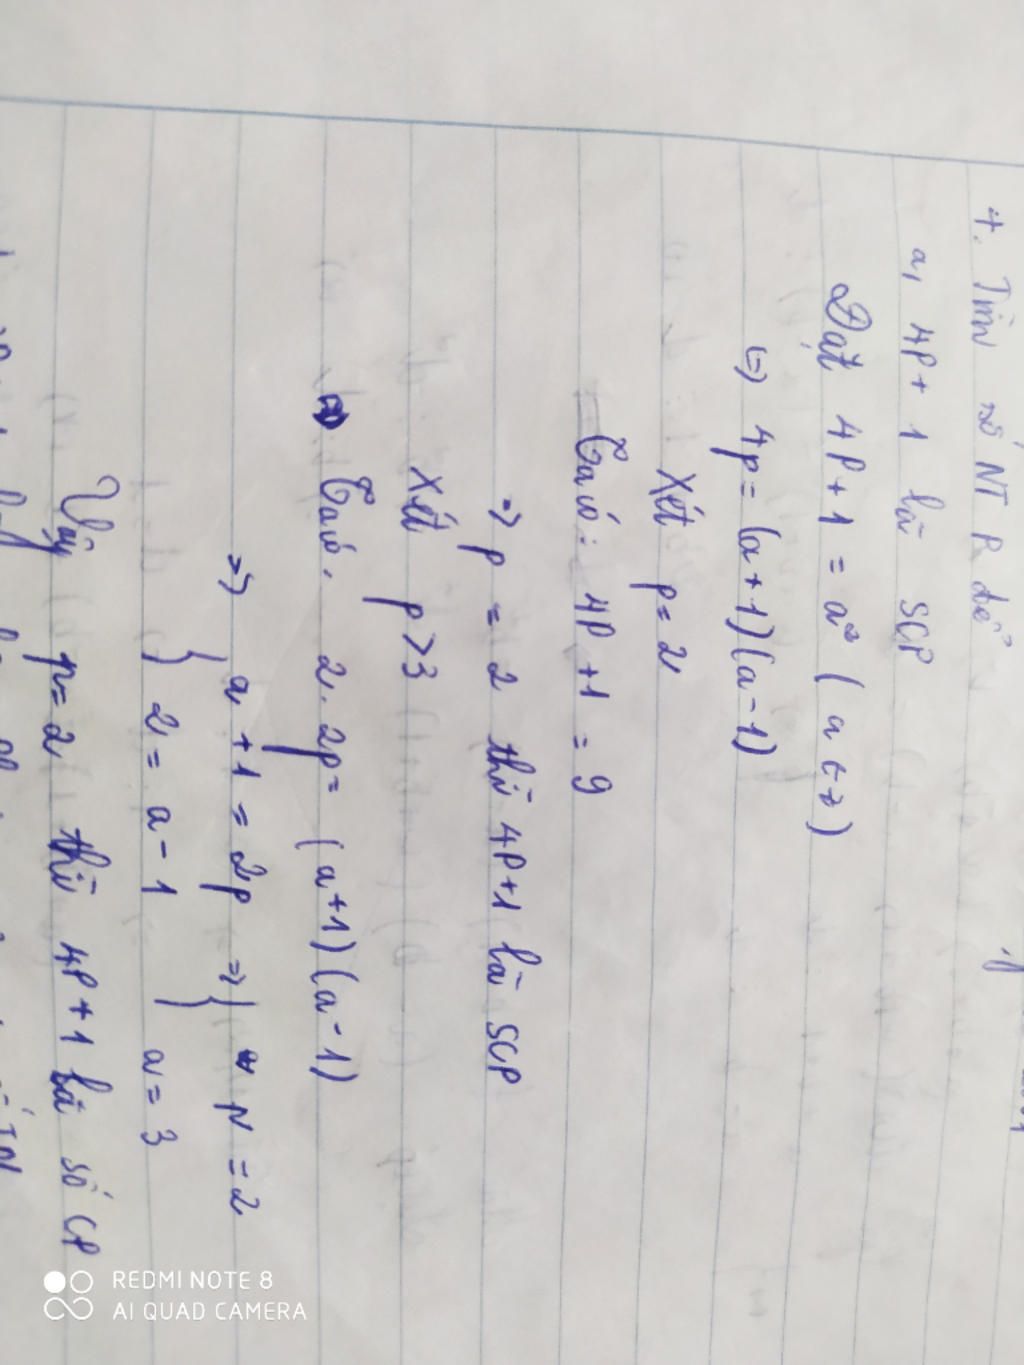 4. Tìm số NT P để
a, 4P + 1 là SCP
Đặt 4P + 1 = a² ( a ∈ Z )
⇔ 4p = (a+1)(a-1)
Xét p = 2
Ta có: 4P + 1 = 9
⇒ p = 2 thì 4P+1 là SCP
Xét p > 3
Ta có. 2. 2p = (a+1)(a-1)
⇒ { a + 1 = 2p ⇒ { p = 2
2 = a - 1 a = 3
Vậy p = 2 thì 4P + 1 là số CP
REDMI NOTE 8
AI QUAD CAMERA